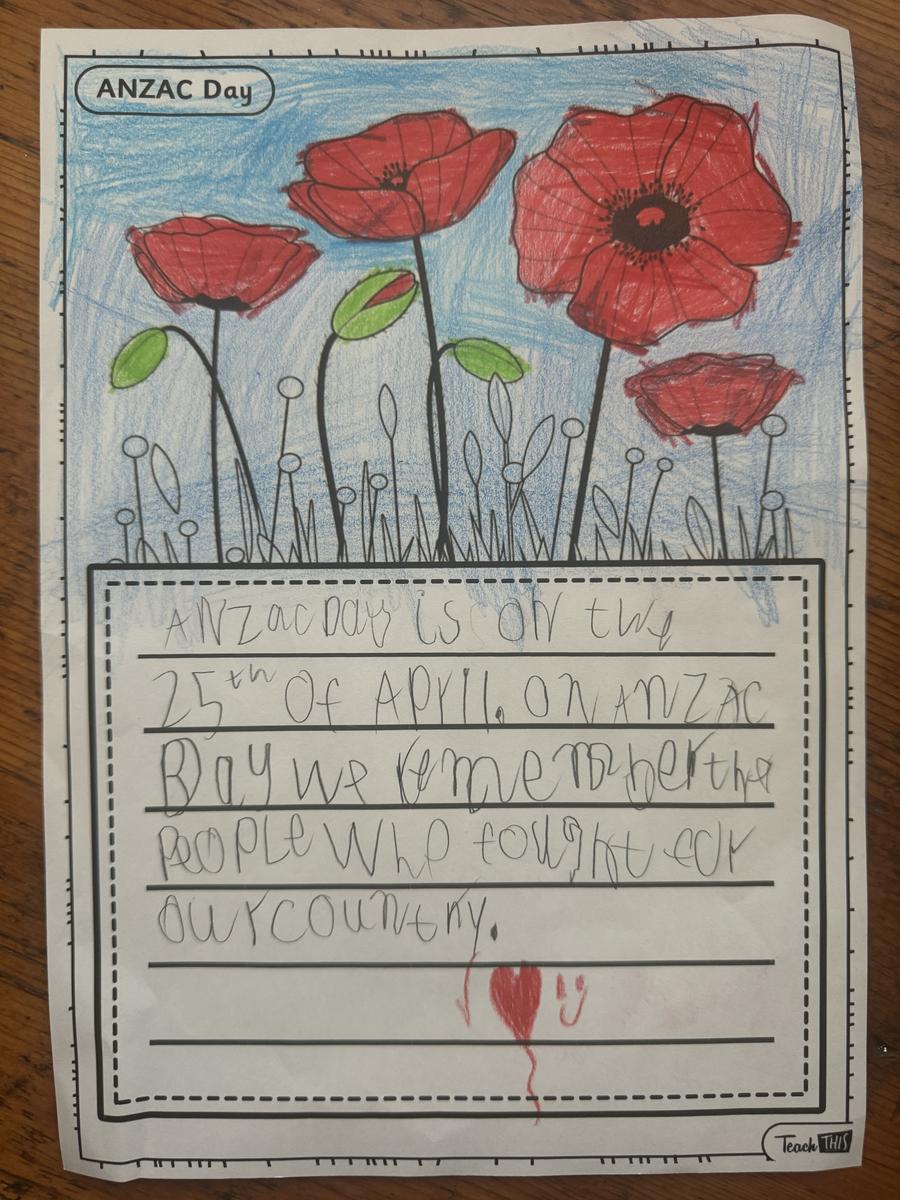 ANZAC Day
ANZac Day is on the
25th Of APril. ON ANZAC
Day we remember the
PeOPLe Who fought for
our country.
I ♥ U
Teach THIS